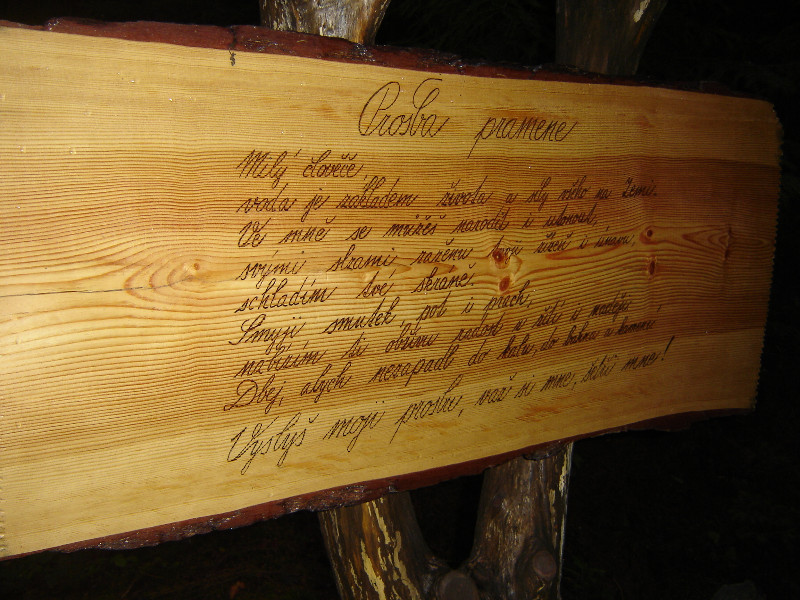 Prosba pramene
Milý člověče,
voda je základem života a síly všeho na Zemi.
Ve mně se můžeš narodit i utonout,
svými slzami zaženu tvou žízeň i únavu,
schladím tvé skráně.
Smyji smutek, pot i prach,
nabízím ti občinu radost v žití i naději.
Dbej, abych nezapadl do kalu, do bahna a kamení.
Vyslyš moji prosbu, važ si mne, šetři mne!